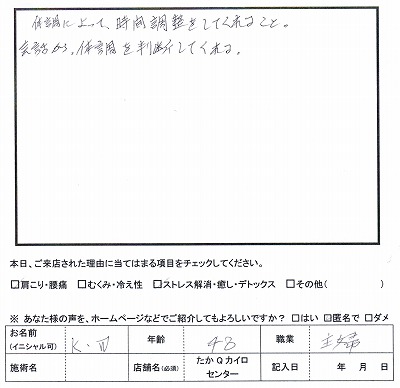 体調によって、時間調整をしてくれること。
会話から、体調を判断してくれる。
本日、ご来店された理由に当てはまる項目をチェックしてください。
□肩こり・腰痛 □むくみ・冷え性 □ストレス解消・癒し・デトックス □その他( )
※ あなた様の声を、ホームページなどでご紹介してもよろしいですか? □はい □匿名で □ダメ
お名前 (イニシャル可) K・ 年齢 48 職業 主婦
施術名 店舗名(必須) たかQカイロセンター 記入日 年 月 日